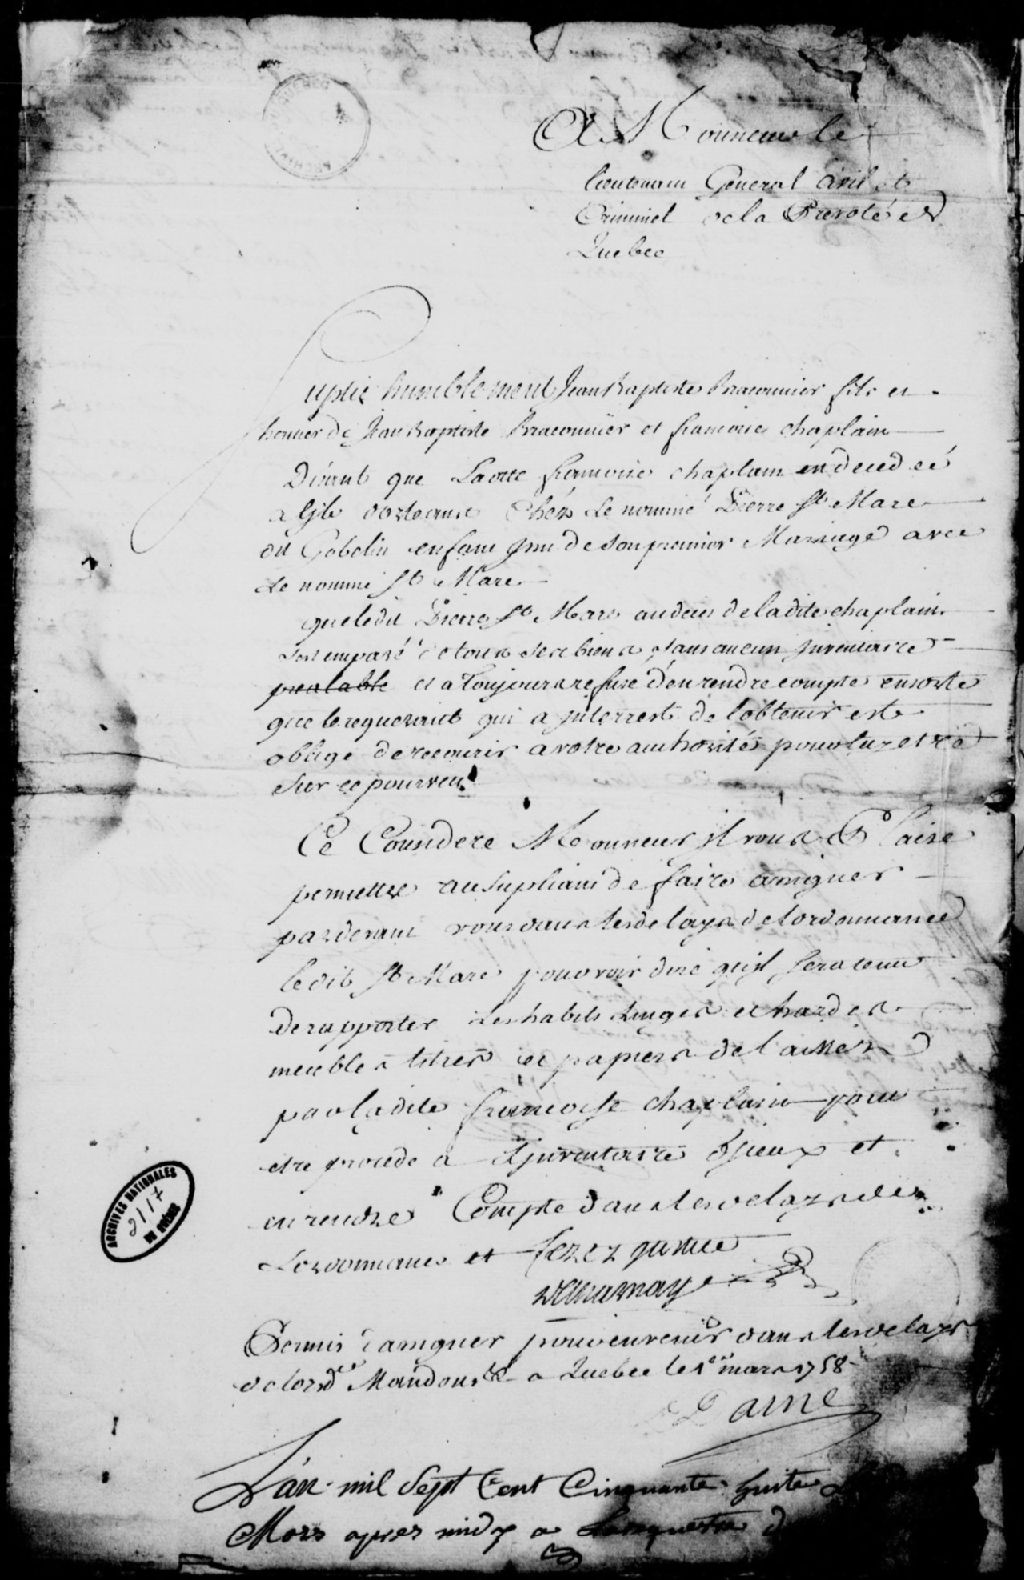 A Monsieur le
lieutenant General Civil et
Criminel de la Prevoté de
Quebec
Suplie humblement Jean Baptiste Braconnier fils et
heritier de Jean Baptiste Braconnier et francoise chaplain
Disant que Ladite francoise chaplain en decedeé
a lisle dorleans Chéz Le nommé Pierre St Marc
dit Gobelin enfant issu de son premier Mariage avec
Le nommé St Marc
que ledit Pierre St Marc au deces de ladite chaplain
sest emparé de tous ses biens sans aucun Inventaire
prealable et a toujours refusé d'en rendre compte ensorte
que le requerant qui a interrest de l'obtenir est
obligé de recourir a votre authorité pour luy etre
sur ce pourveu
Ce Consideré Monsieur il vous Plaise
permettre au supliant de faire assigner
pardevant vous dans les delays de lordonnance
ledit St Marc pour voir dire quil sera tenu
de rapporter Les habits Linges et hardes
meubles titres et papiers delaissés
par ladite francoise chaplain pour
etre procedé a Linventaire dIceux et
en rendre Compte dans les delays de
Lordonnance et ferez justice
Permis d'assigner pour en venir dans les delays
de lordce Mandons &c a Quebec le 1er mars 1758
Daine
L'an mil Sept Cent Cinquante huite
Mars apres midy a La requeste d
ARCHIVES NATIONALES
2117
DU QUÉBEC